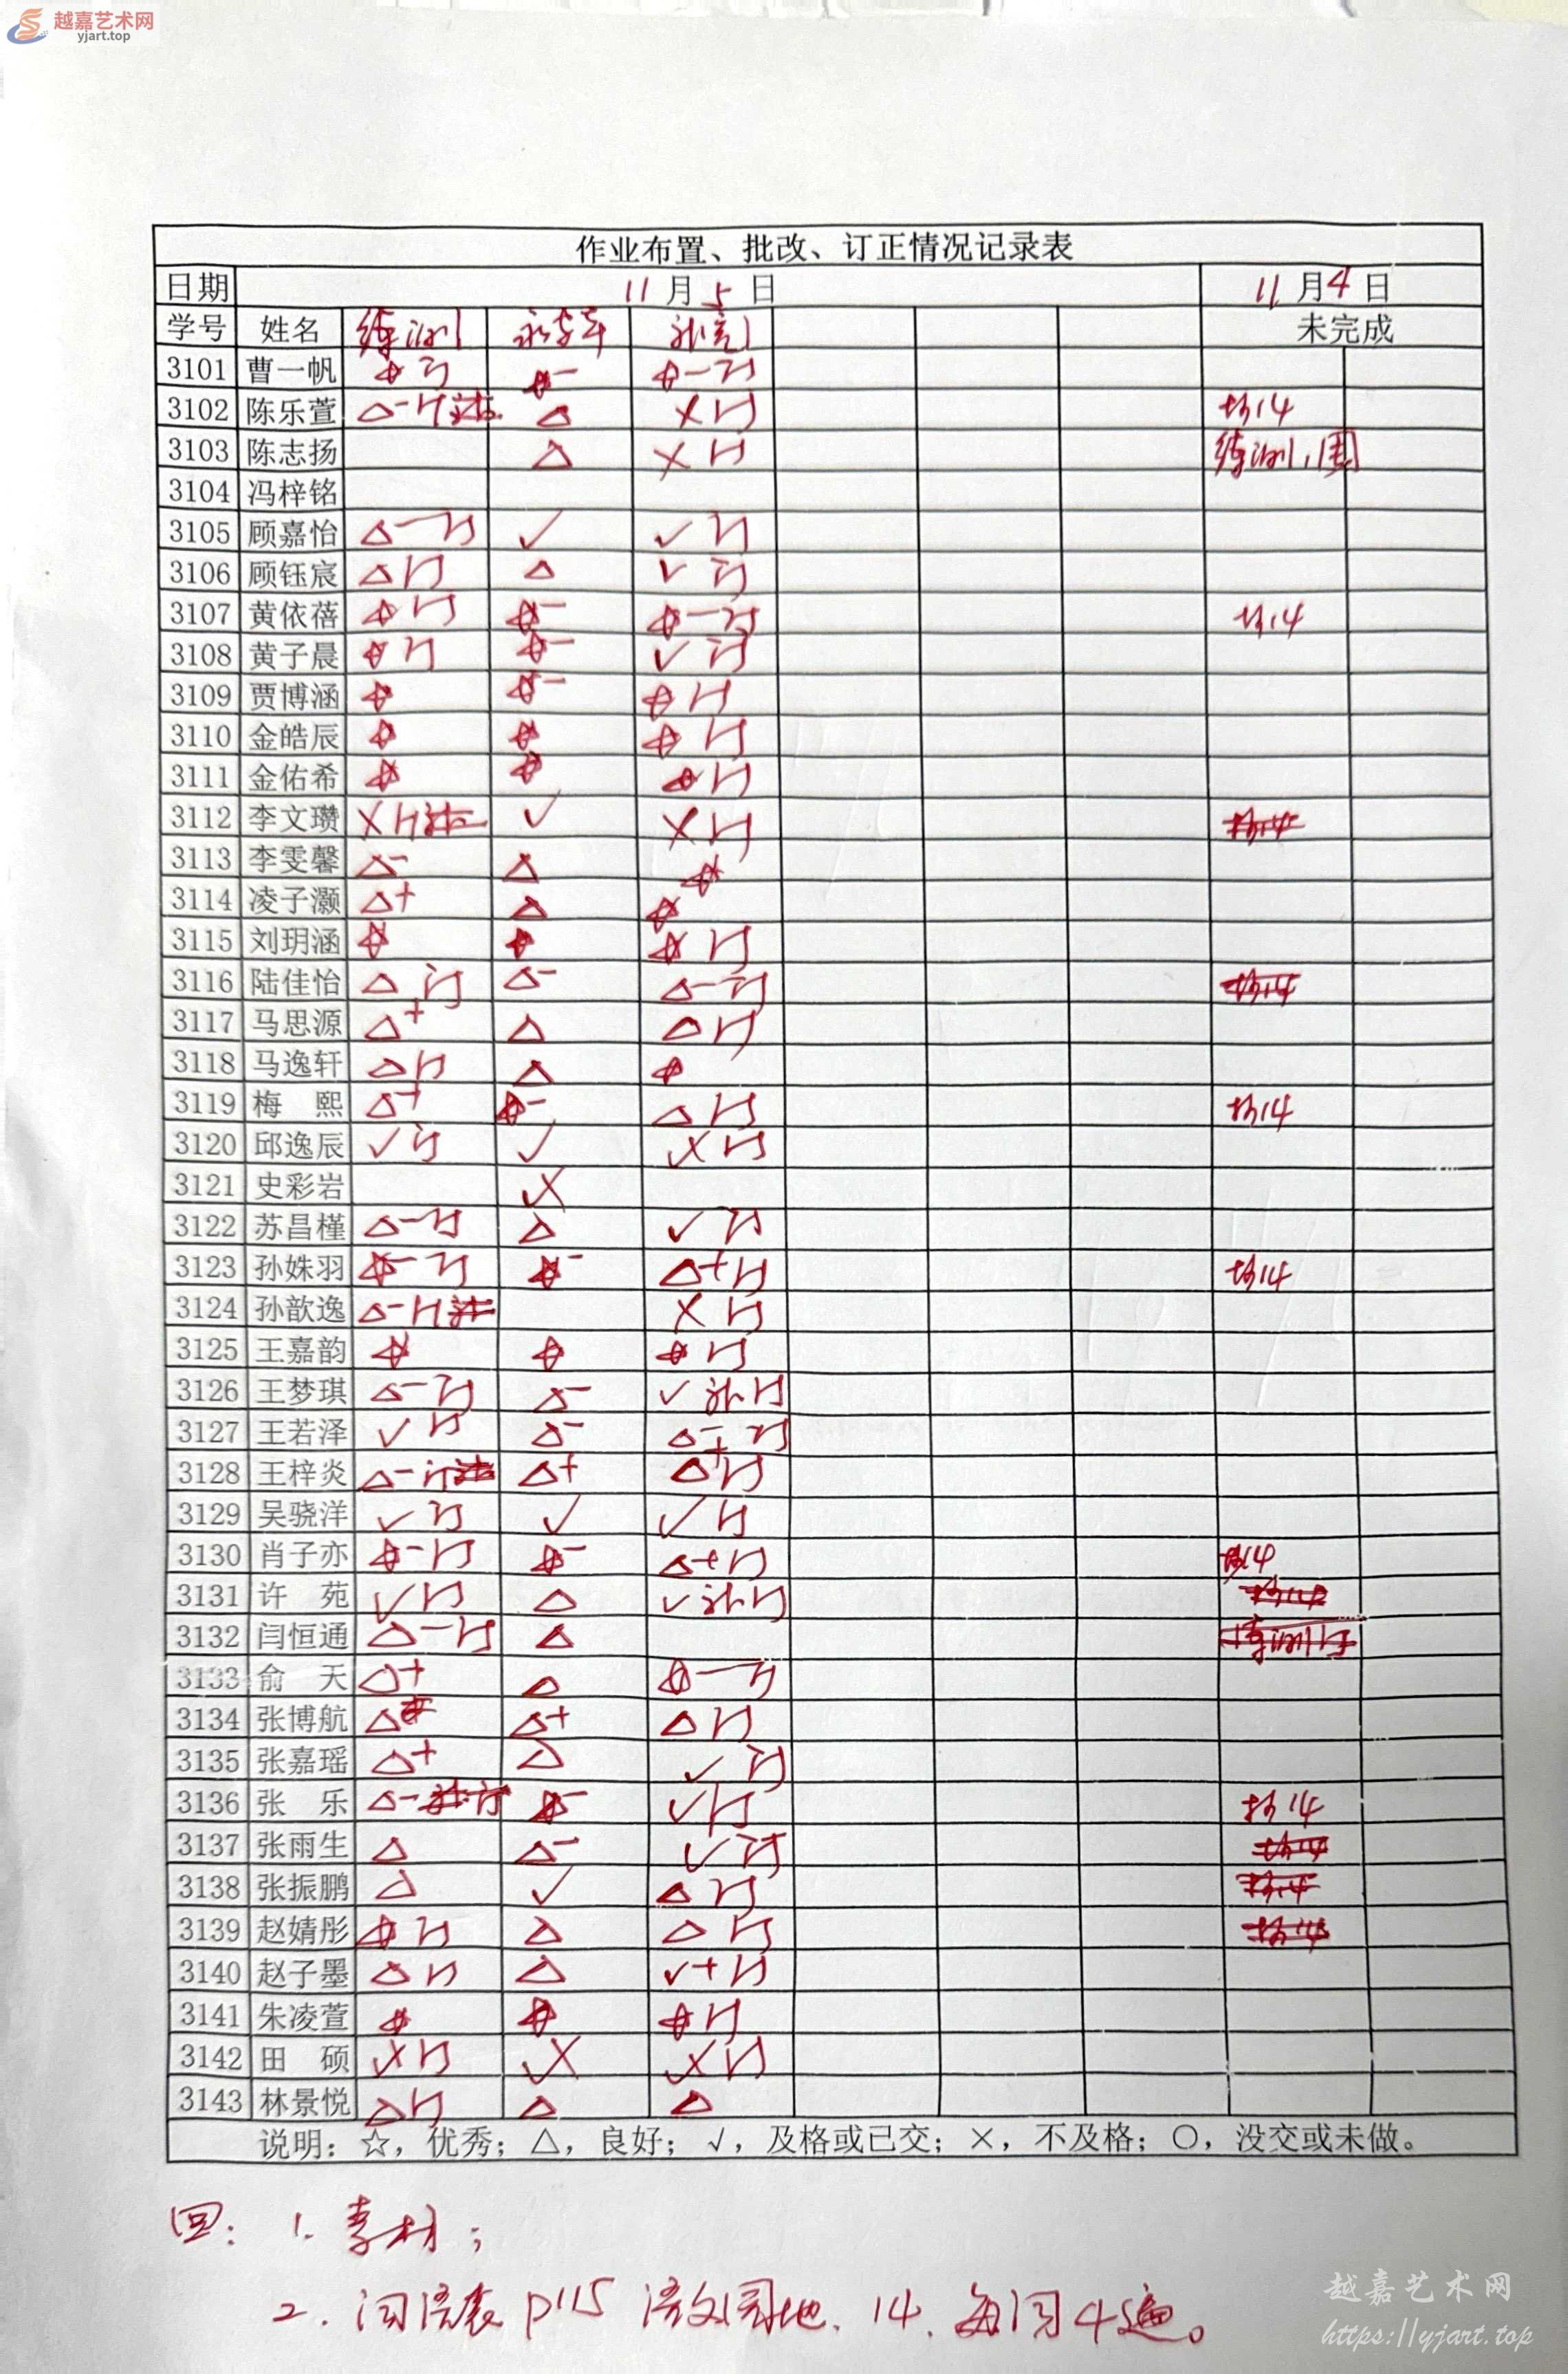 越嘉艺术网
yjart.top
作业布置、批改、订正情况记录表
日期 11月5日 11月4日
学号 姓名 练测 未完成
3101 曹一帆 ☆订 ☆- ☆-订
3102 陈乐萱 △-订 △ ×订 14
3103 陈志扬 △ ×订 练测,
3104 冯梓铭
3105 顾嘉怡 △-订 √ √订
3106 顾钰宸 △订 △ √订
3107 黄依蓓 ☆订 ☆- ☆-订 14
3108 黄子晨 ☆订 ☆- √订
3109 贾博涵 ☆ ☆- ☆订
3110 金皓辰 ☆ ☆ ☆订
3111 金佑希 ☆ ☆ ☆订
3112 李文瓒 ×订 √ ×订
3113 李雯馨 △- △ ☆
3114 凌子灏 △+ △ ☆
3115 刘玥涵 ☆ ☆ ☆订
3116 陆佳怡 △订 △- △-订
3117 马思源 △+ △ △订
3118 马逸轩 △订 △ ☆
3119 梅 熙 △+ ☆- △订 14
3120 邱逸辰 √订 √ ×订
3121 史彩岩
3122 苏昌槿 △-订 △ √订
3123 孙姝羽 ☆-订 ☆- △+订 14
3124 孙歆逸 △-订 ×订
3125 王嘉韵 ☆ ☆ ☆订
3126 王梦琪 △-订 △- √补订
3127 王若泽 √订 △- △-订
3128 王梓炎 △-订 △+ △+订
3129 吴骁洋 √订 √ √订
3130 肖子亦 ☆-订 ☆- △+订 14
3131 许 苑 √订 △ √补订
3132 闫恒通 △-订 △
3133 俞 天 △+ △ ☆-订
3134 张博航 △ △+ △订
3135 张嘉瑶 △+ △ √订
3136 张 乐 △-订 ☆- √订 14
3137 张雨生 △ △- √订
3138 张振鹏 △ √ △订
3139 赵婧彤 ☆订 △ △订
3140 赵子墨 △订 △ √+订
3141 朱凌萱 ☆ ☆ ☆订
3142 田 硕 订 订
3143 林景悦 △订 △ △
说明：☆，优秀；△，良好；√，及格或已交；×，不及格；○，没交或未做。
回: 1. 素材;
2. 词语表 P115 语文园地. 14. 每词4遍。
越嘉艺术网
https://yjart.top